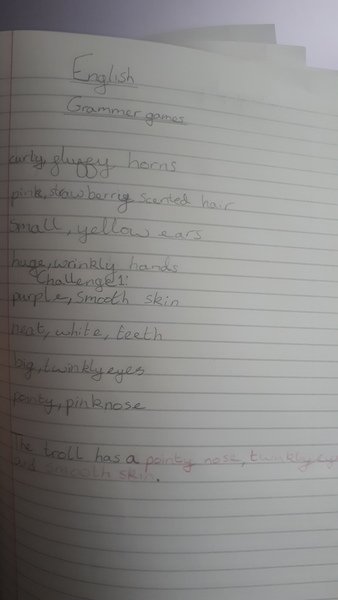 English
Grammer games
curly, gluffy horns
pink, strawberrig scented hair
small, yellow ears
huge, wrinkly hands
Challenge 1:
purple, smooth skin
neat, white, teeth
big, twinkly eyes
pointy, pink nose
The troll has a pointy nose, twinkly
and smooth skin.